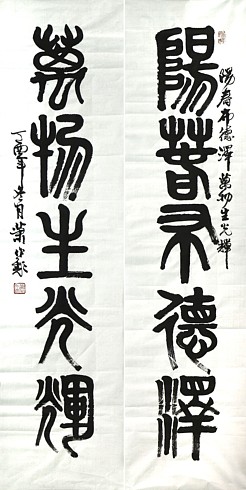 陽春布德澤 萬物生光輝
陽春布德澤
萬物生光輝
丁酉年冬月